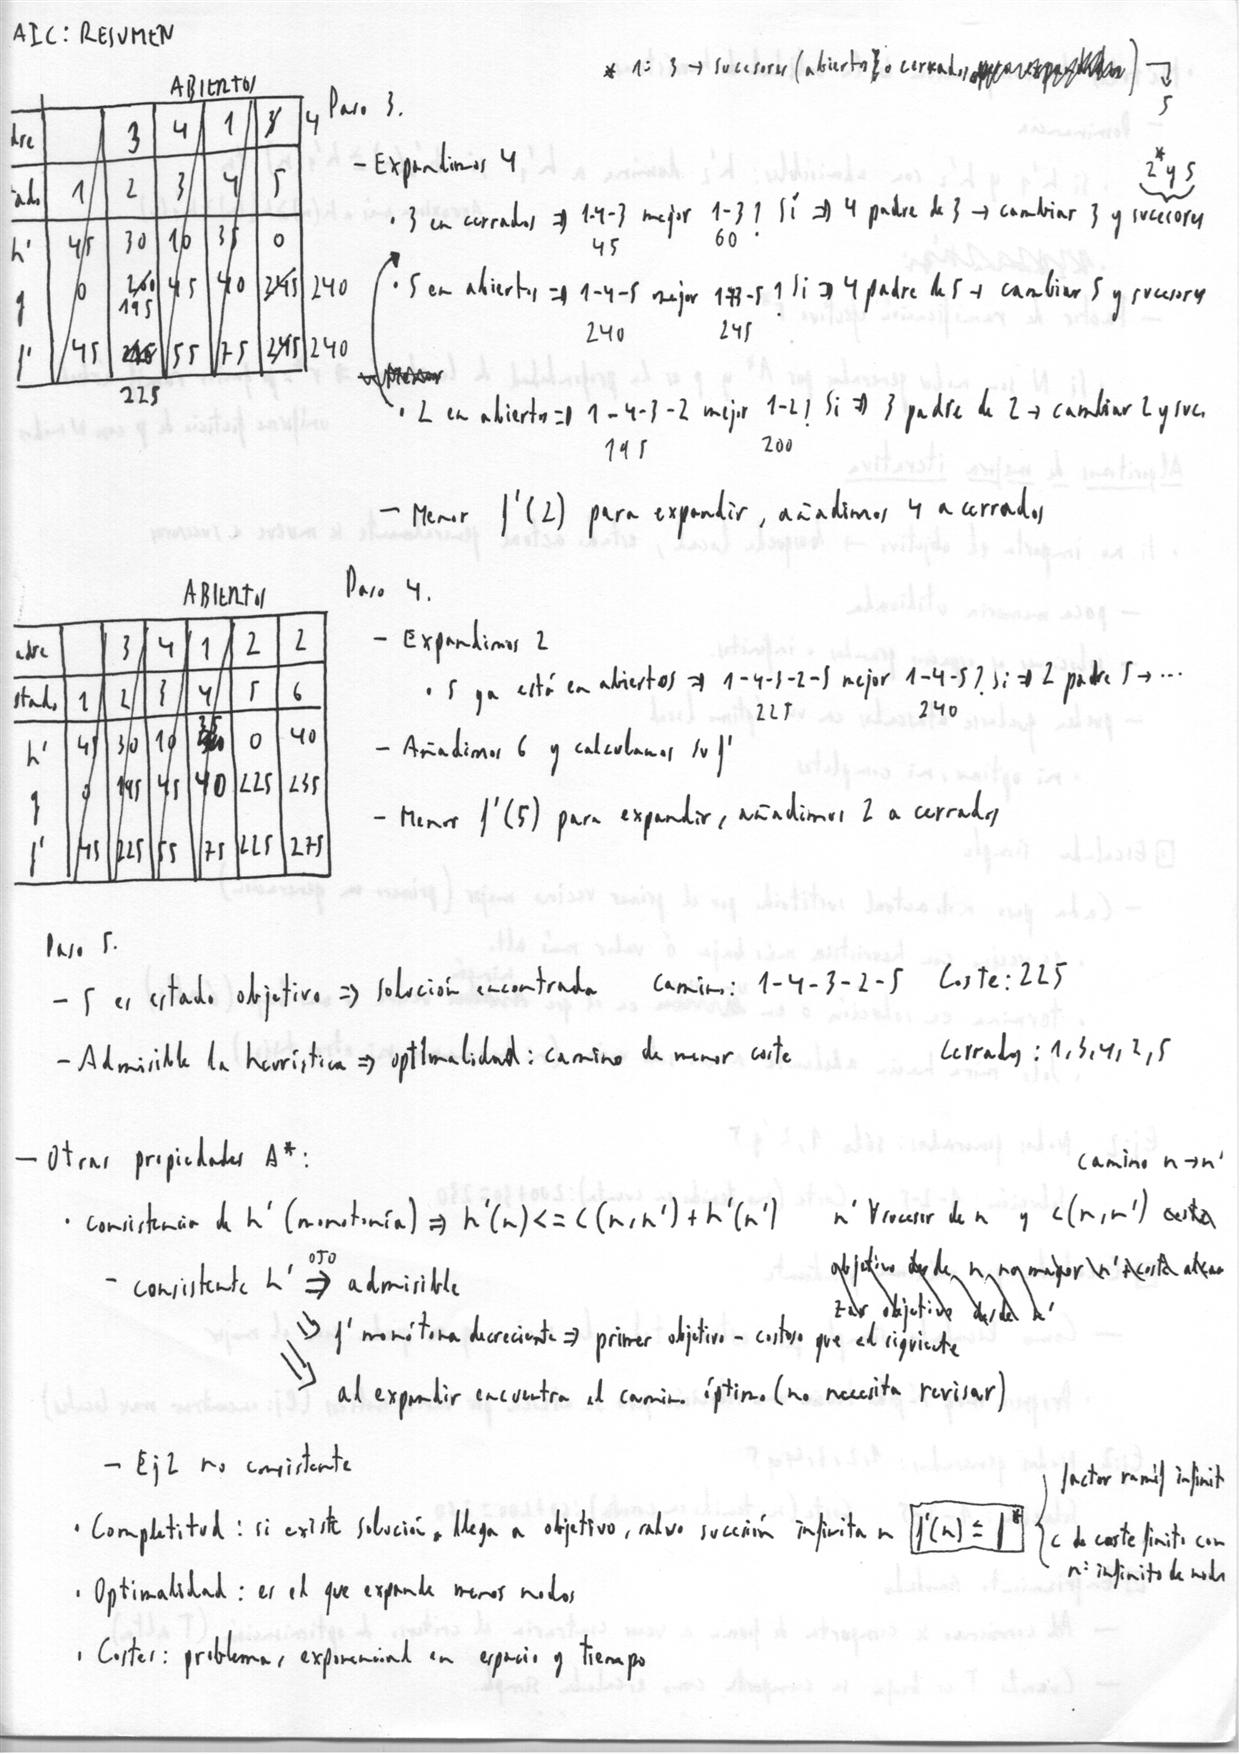 AIC: RESUMEN
* 1: 3 → sucesores (abiertos o cerrados) → 5
ABIERTOS
dre 3 4 1 3 4
ado 1 2 3 4 5
h' 45 30 10 35 0
g 0 200 195 45 40 245 240
f' 45 55 75 245 240
225
Paso 3.
- Expandimos 4
2* y 5
· 3 en cerrados ⇒ 1-4-3 mejor 1-3? Sí ⇒ 4 padre de 3 → cambiar 3 y sucesores
45 60
· 5 en abiertos ⇒ 1-4-5 mejor 1-3-5? Sí ⇒ 4 padre de 5 → cambiar 5 y sucesores
240 245
· 2 en abiertos ⇒ 1-4-3-2 mejor 1-2? Sí ⇒ 3 padre de 2 → cambiar 2 y suc
195 200
- Menor f'(2) para expandir, añadimos 4 a cerrados
ABIERTOS
adre 3 4 1 2 2
stado 1 2 3 4 5 6
h' 45 30 10 35 0 40
g 0 195 45 40 225 235
f' 45 225 55 75 225 275
Paso 4.
- Expandimos 2
· 5 ya está en abiertos ⇒ 1-4-3-2-5 mejor 1-4-5? Sí ⇒ 2 padre 5 → ...
225 240
- Añadimos 6 y calculamos su f'
- Menor f'(5) para expandir, añadimos 2 a cerrados
Paso 5.
- 5 es estado objetivo ⇒ solución encontrada Camino: 1-4-3-2-5 Coste: 225
- Admisible la heurística ⇒ optimalidad: camino de menor coste Cerrados: 1,3,4,2,5
- Otras propiedades A*:
camino n→n'
· consistencia de h' (monotonía) ⇒ h'(n) <= c(n,n') + h'(n') n' ∀sucesor de n y c(n,n') coste
objetivo desde n, no mayor n' + coste alcan
zar objetivo desde n'
- consistente h' ⇒ admisible
OJO
⇒ f' monótona decreciente ⇒ primer objetivo - costoso que el siguiente
⇒ al expandir encuentra el camino óptimo (no necesita revisar)
- Ej2 no consistente
· Completitud: si existe solución, llega a objetivo, salvo sucesión infinita n f'(n) ≤ f*
factor ramif infinit
c de coste finito con
nº infinito de nodos
· Optimalidad: es el que expande menos nodos
· Costes: problema, exponencial en espacio y tiempo